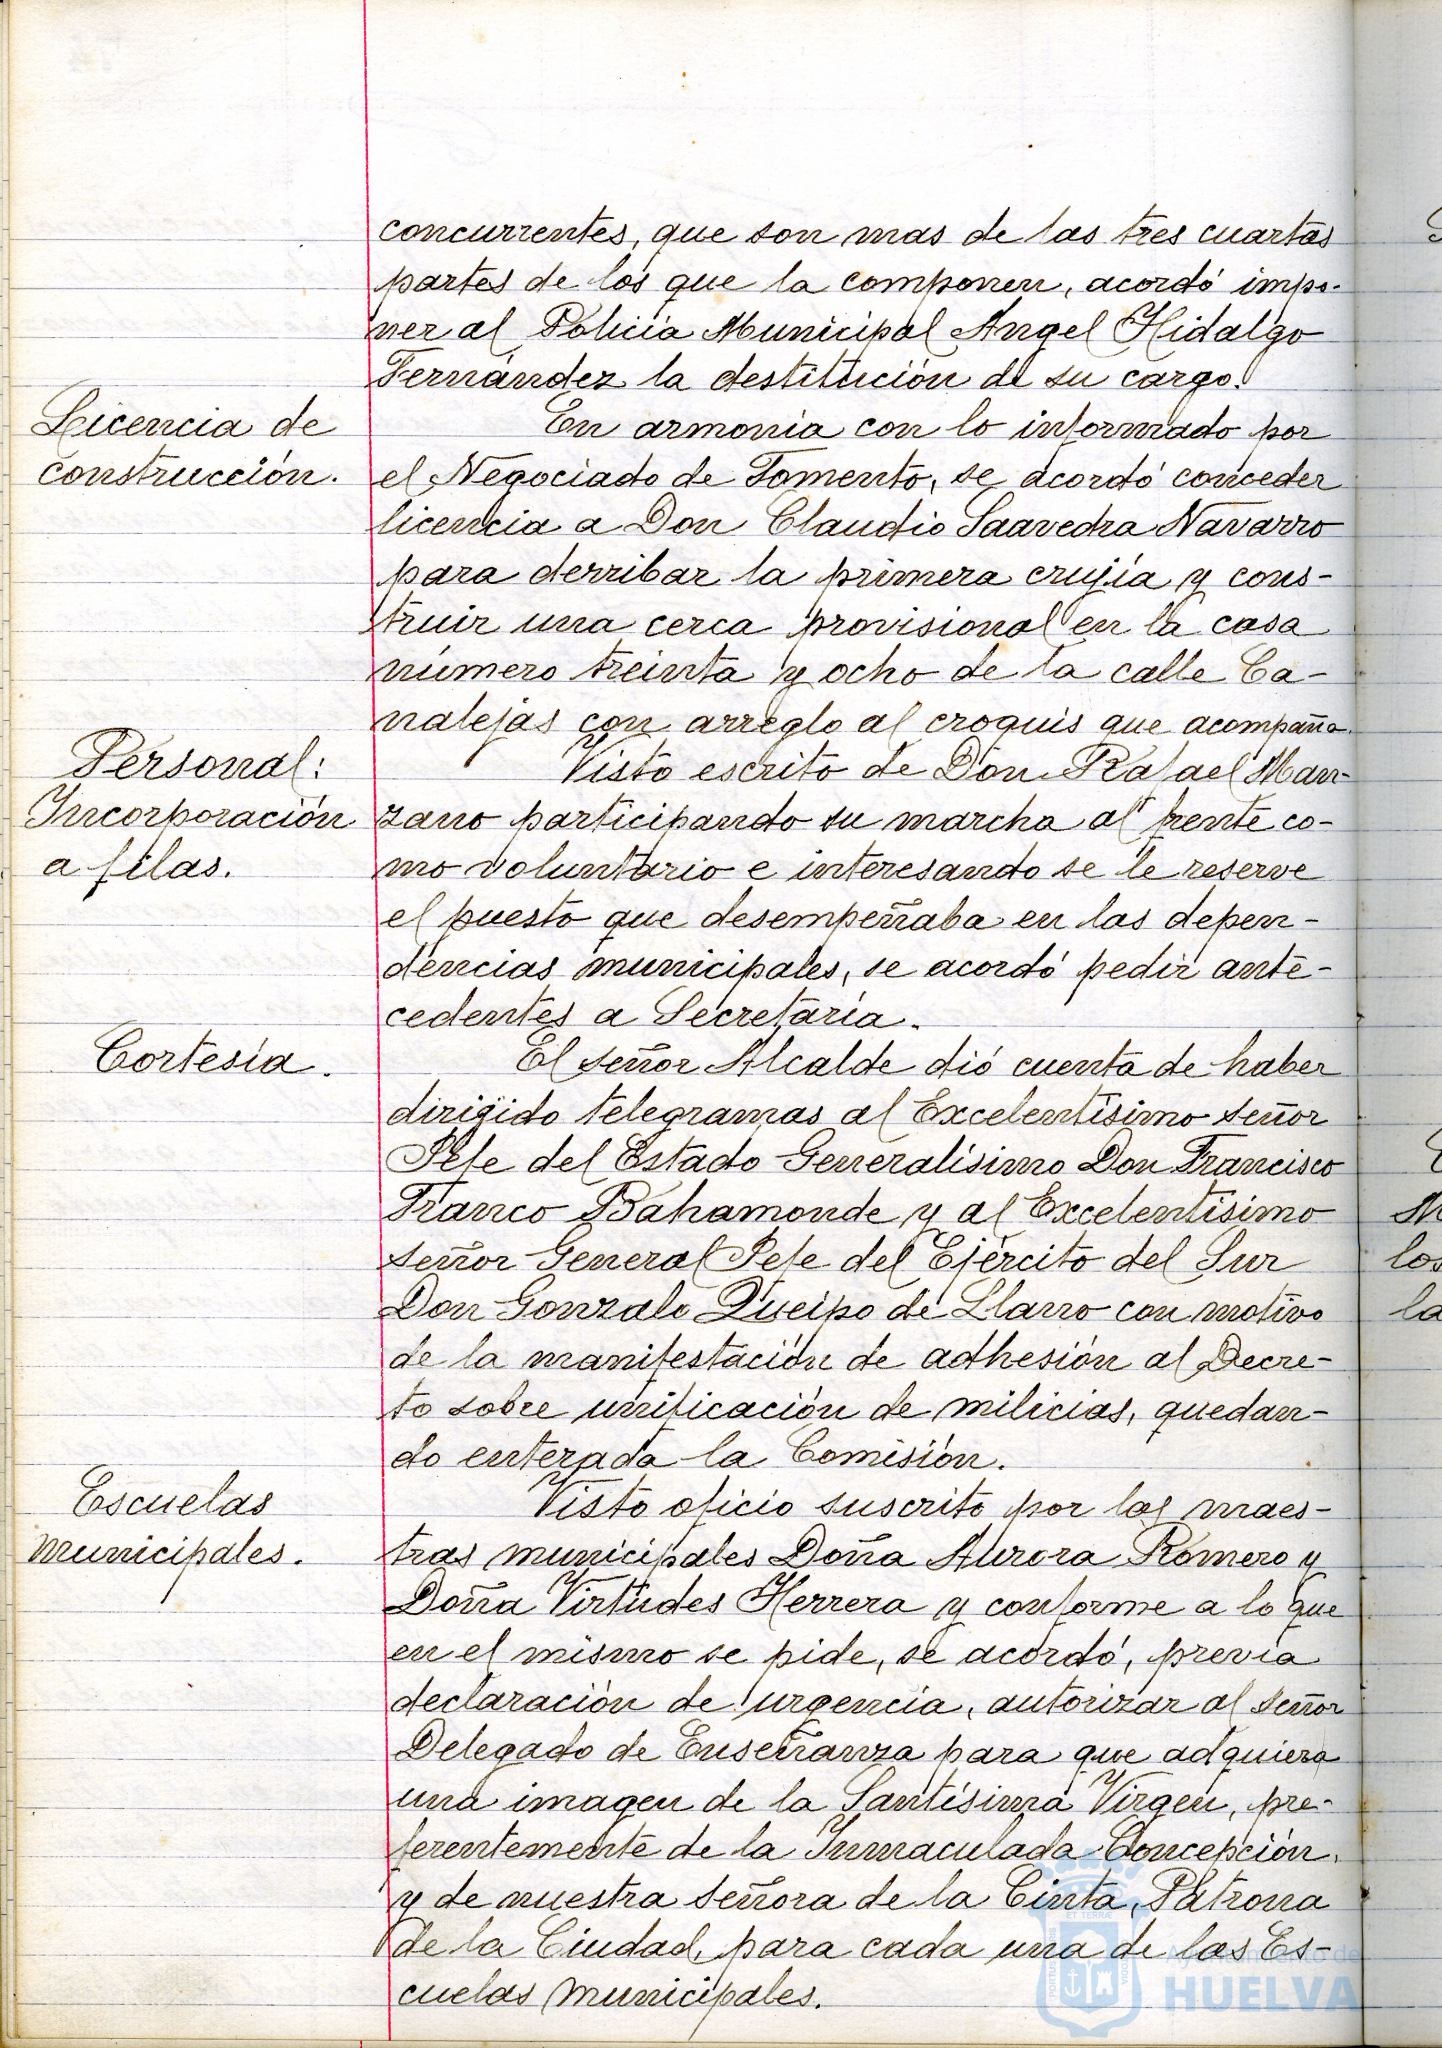 concurrentes, que son mas de las tres cuartas
partes de los que la componen, acordó impo-
ner al Policía Municipal Angel Hidalgo
Fernández la destitución de su cargo.
Licencia de
construcción.
En armonía con lo informado por
el Negociado de Fomento, se acordó conceder
licencia a Don Claudio Saavedra Navarro
para derribar la primera crujía y cons-
truir una cerca provisional en la casa
número treinta y ocho de la calle Ca-
nalejas con arreglo al croquis que acompaña.
Personal:
Incorporación
a filas.
Visto escrito de Don Rafael Man-
zano participando su marcha al frente co-
mo voluntario e interesando se le reserve
el puesto que desempeñaba en las depen-
dencias municipales, se acordó pedir ante-
cedentes a Secretaría.
Cortesía.
El señor Alcalde dió cuenta de haber
dirigido telegramas al Excelentísimo señor
Jefe del Estado Generalísimo Don Francisco
Franco Bahamonde y al Excelentísimo
señor General Jefe del Ejército del Sur
Don Gonzalo Queipo de Llano con motivo
de la manifestación de adhesión al Decre-
to sobre unificación de milicias, quedan-
do enterada la Comisión.
Escuelas
municipales.
Visto oficio suscrito por las maes-
tras municipales Doña Aurora Romero y
Doña Virtudes Herrera y conforme a lo que
en el mismo se pide, se acordó, previa
declaración de urgencia, autorizar al señor
Delegado de Enseñanza para que adquiera
una imagen de la Santísima Virgen, pre-
ferentemente de la Inmaculada Concepción,
y de nuestra señora de la Cinta, Patrona
de la Ciudad, para cada una de las Es-
cuelas municipales.
Ayuntamiento de
HUELVA